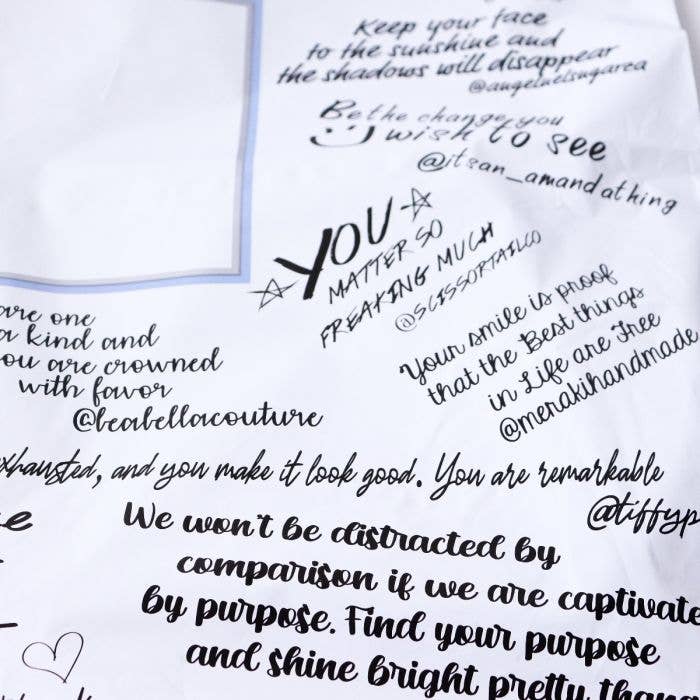 Keep your face
to the sunshine and
the shadows will disappear
Be the change you
wish to see
@itsan_amandathing
YOU
MATTER SO
FREAKING MUCH
@SCISSORTAILCO
Your smile is proof
that the Best things
in Life are Free
@merakihandmade
are one
a kind and
you are crowned
with favor
@beabellacouture
exhausted, and you make it look good. You are remarkable
@tiffyp
We won't be distracted by
comparison if we are captivate
by purpose. Find your purpose
and shine bright pretty thang